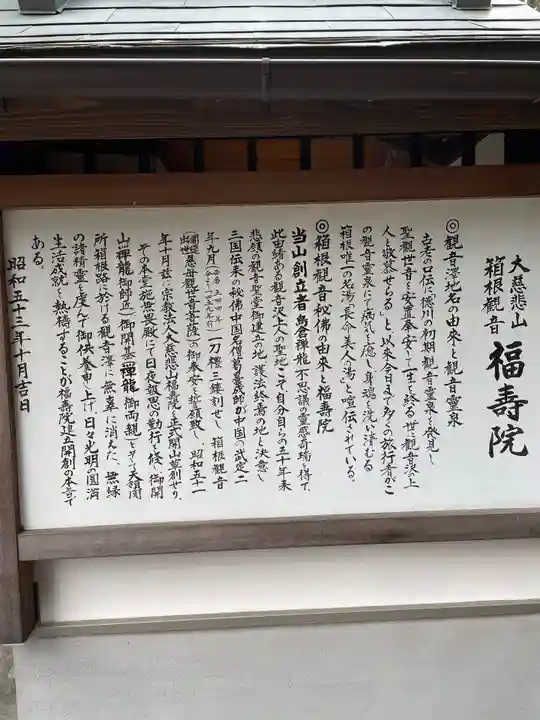 大慈悲山
箱根観音
福寿院
◎観音澤地名の由来と観音霊泉
古老の口伝に「徳川の初期観音霊泉を発見し
聖観世音を安置奉安し一生を終る。世に観音沢の上
人と敬慕せらる」と以来今日まで多くの旅行者がこ
の観音霊泉にて病気を癒し身魂を洗い清むる
箱根唯一の名湯「長命美人の湯」と喧伝されている。
◎箱根観音秘佛の由来と福寿院
当山創立者鳥倉禅龍不思議の霊感奇瑞を得て、
此由緒ある観音沢上人の聖地こそ自分自らの五十年来
悲願の観音聖堂御建立の地護法終焉の地と決意し
三国伝来の秘佛中国名僧菅曇成師が中国の武定二
年九月 一刀禮三鏤刻せし箱根観音
慈母観世音菩薩の御奉安を誓願致し昭和五十一
年十月茲に宗教法人大慈悲山福寿院を正地開山草創せり、
その本堂施無畏殿にて日夜報恩の勤行を修し御開
山禅龍御師正御開基禅龍御両親を
所箱根路に於ける観音澤に無辜に消えた、無縁
の諸精霊を度んで御供養申し上げ、日々光明の圓満
生活成就を熱祷することが福寿院建立開創の本旨で
ある。
昭和五十三年十月吉日